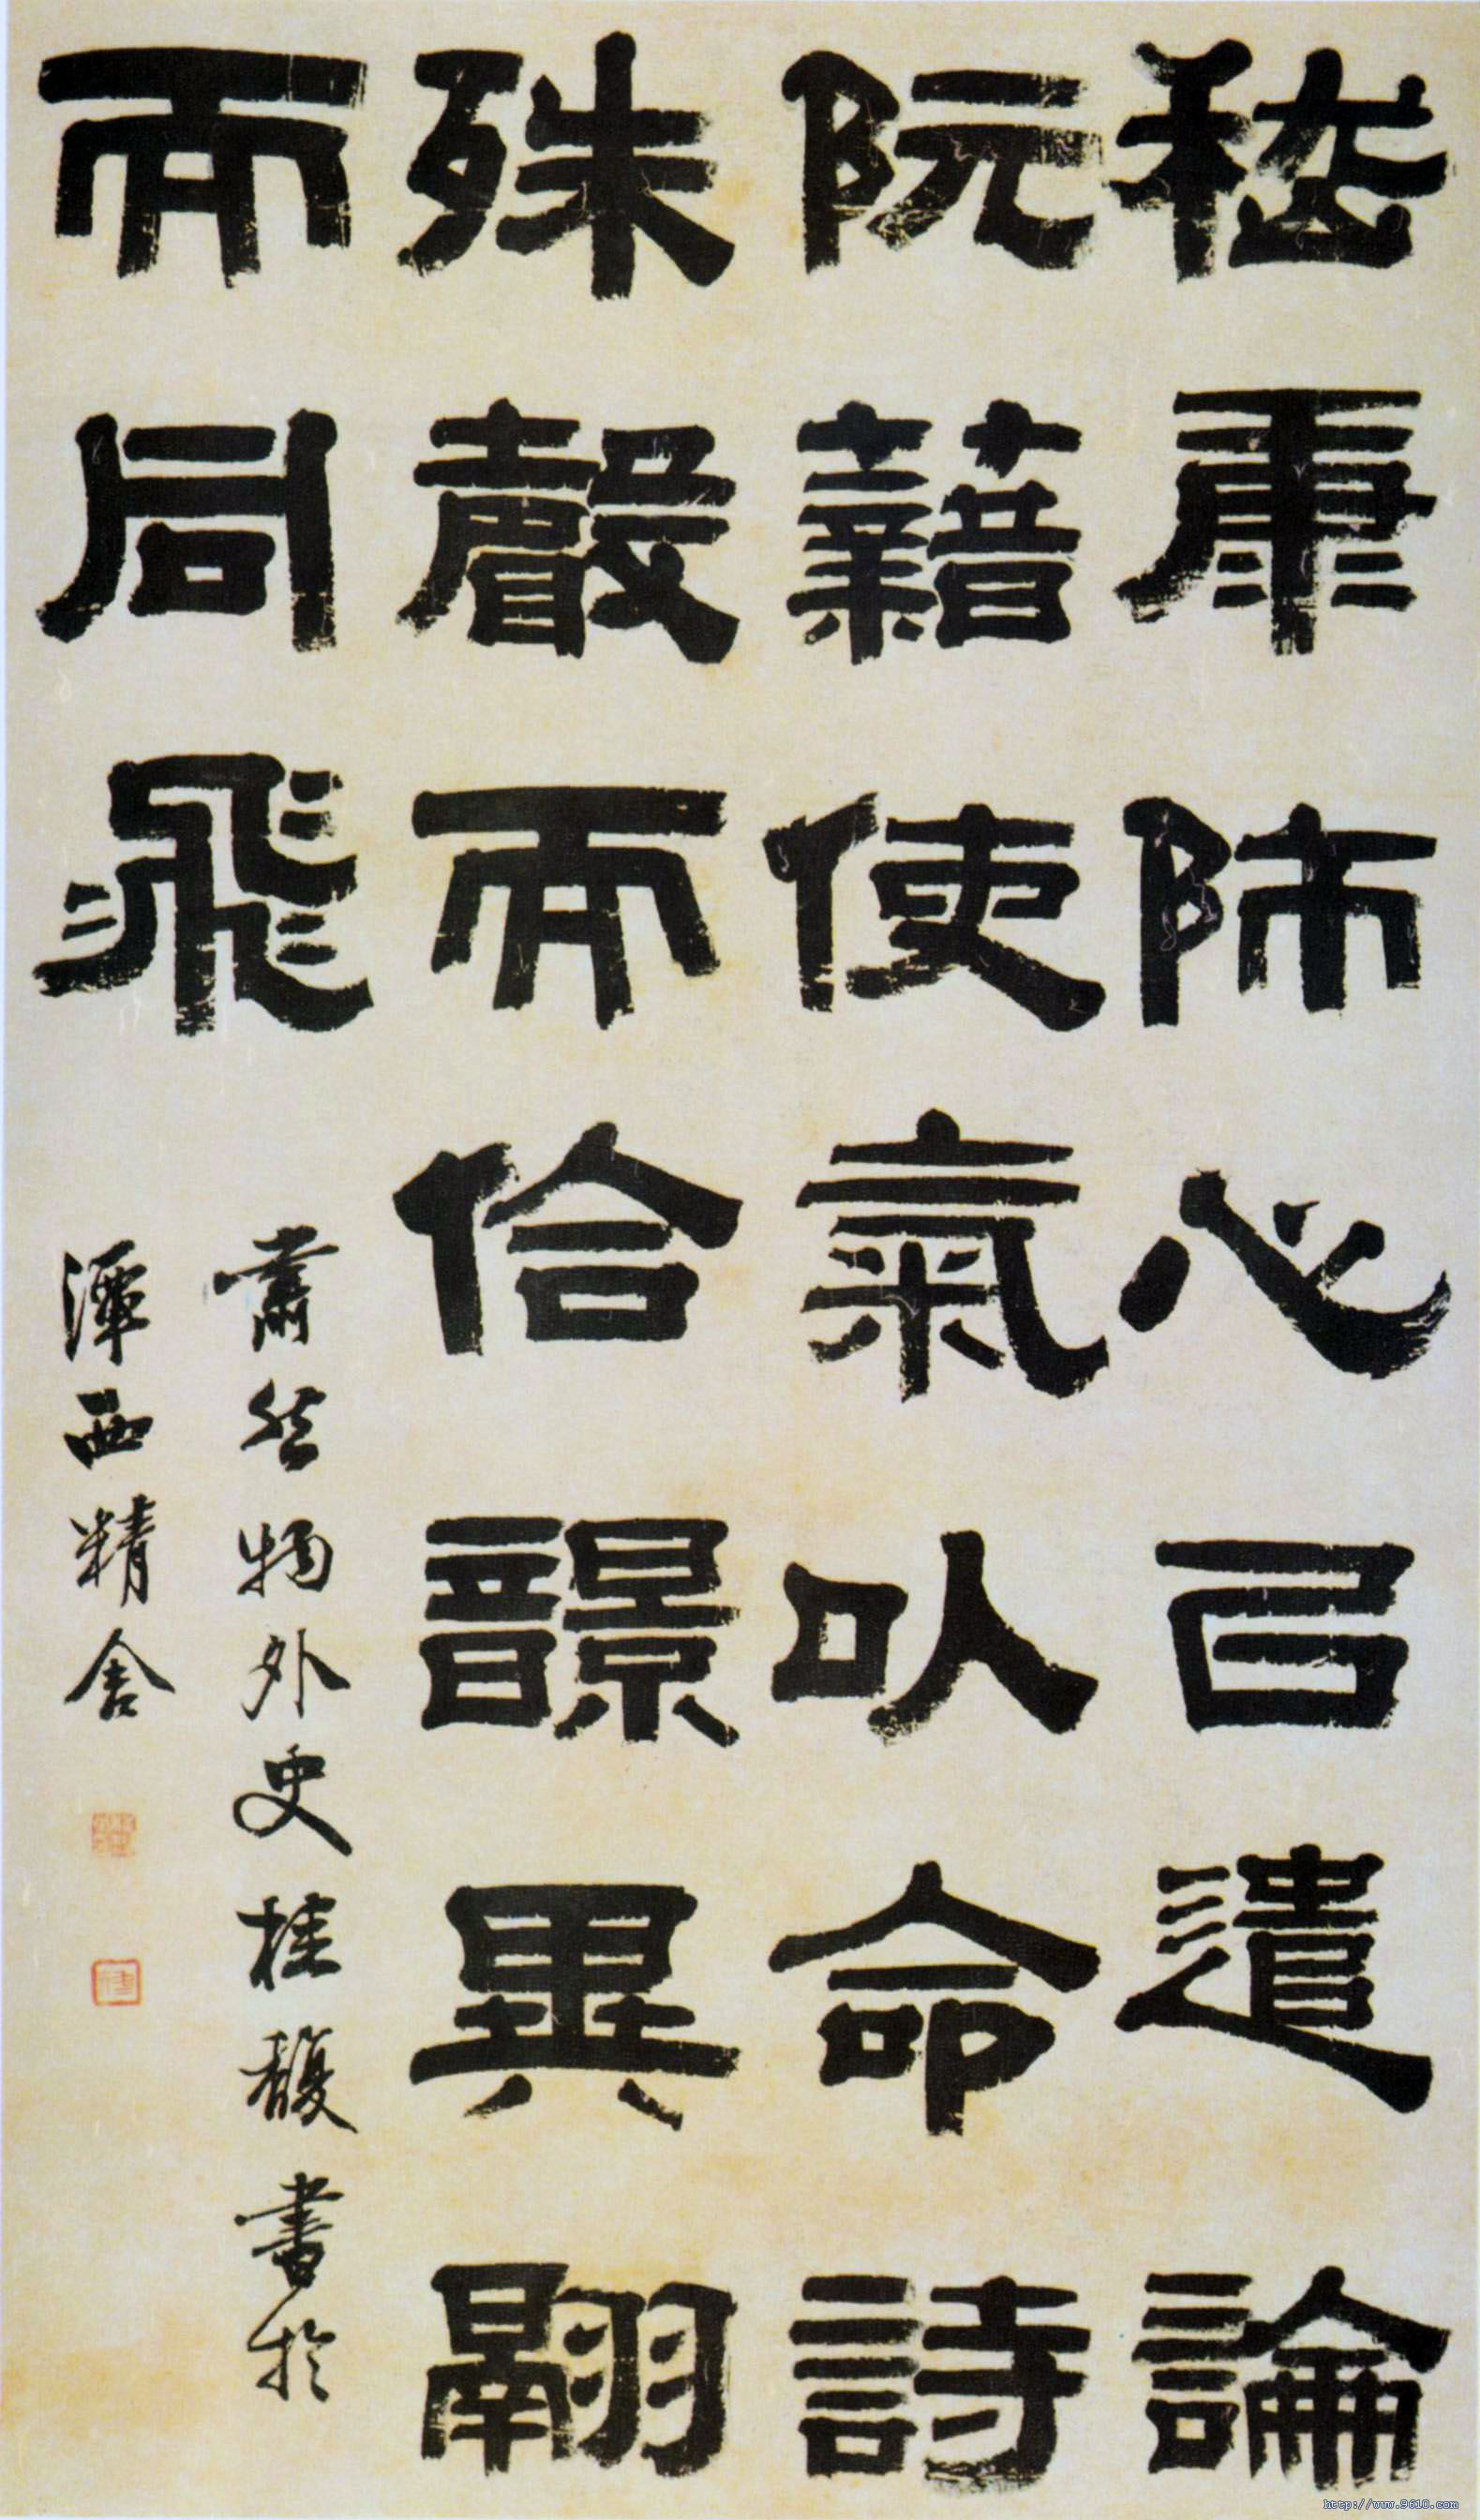 嵇康師心㠯遣論
阮藉使氣㕥命詩
殊聲而佮響異翮
而同飛
肅然物外史桂馥書於
潭西精舍
http://www.9610.com